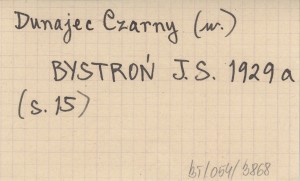 Dunajec Czarny (w.)
BYSTROŃ J.S. 1929a
(s. 15)
BJ/054/3868